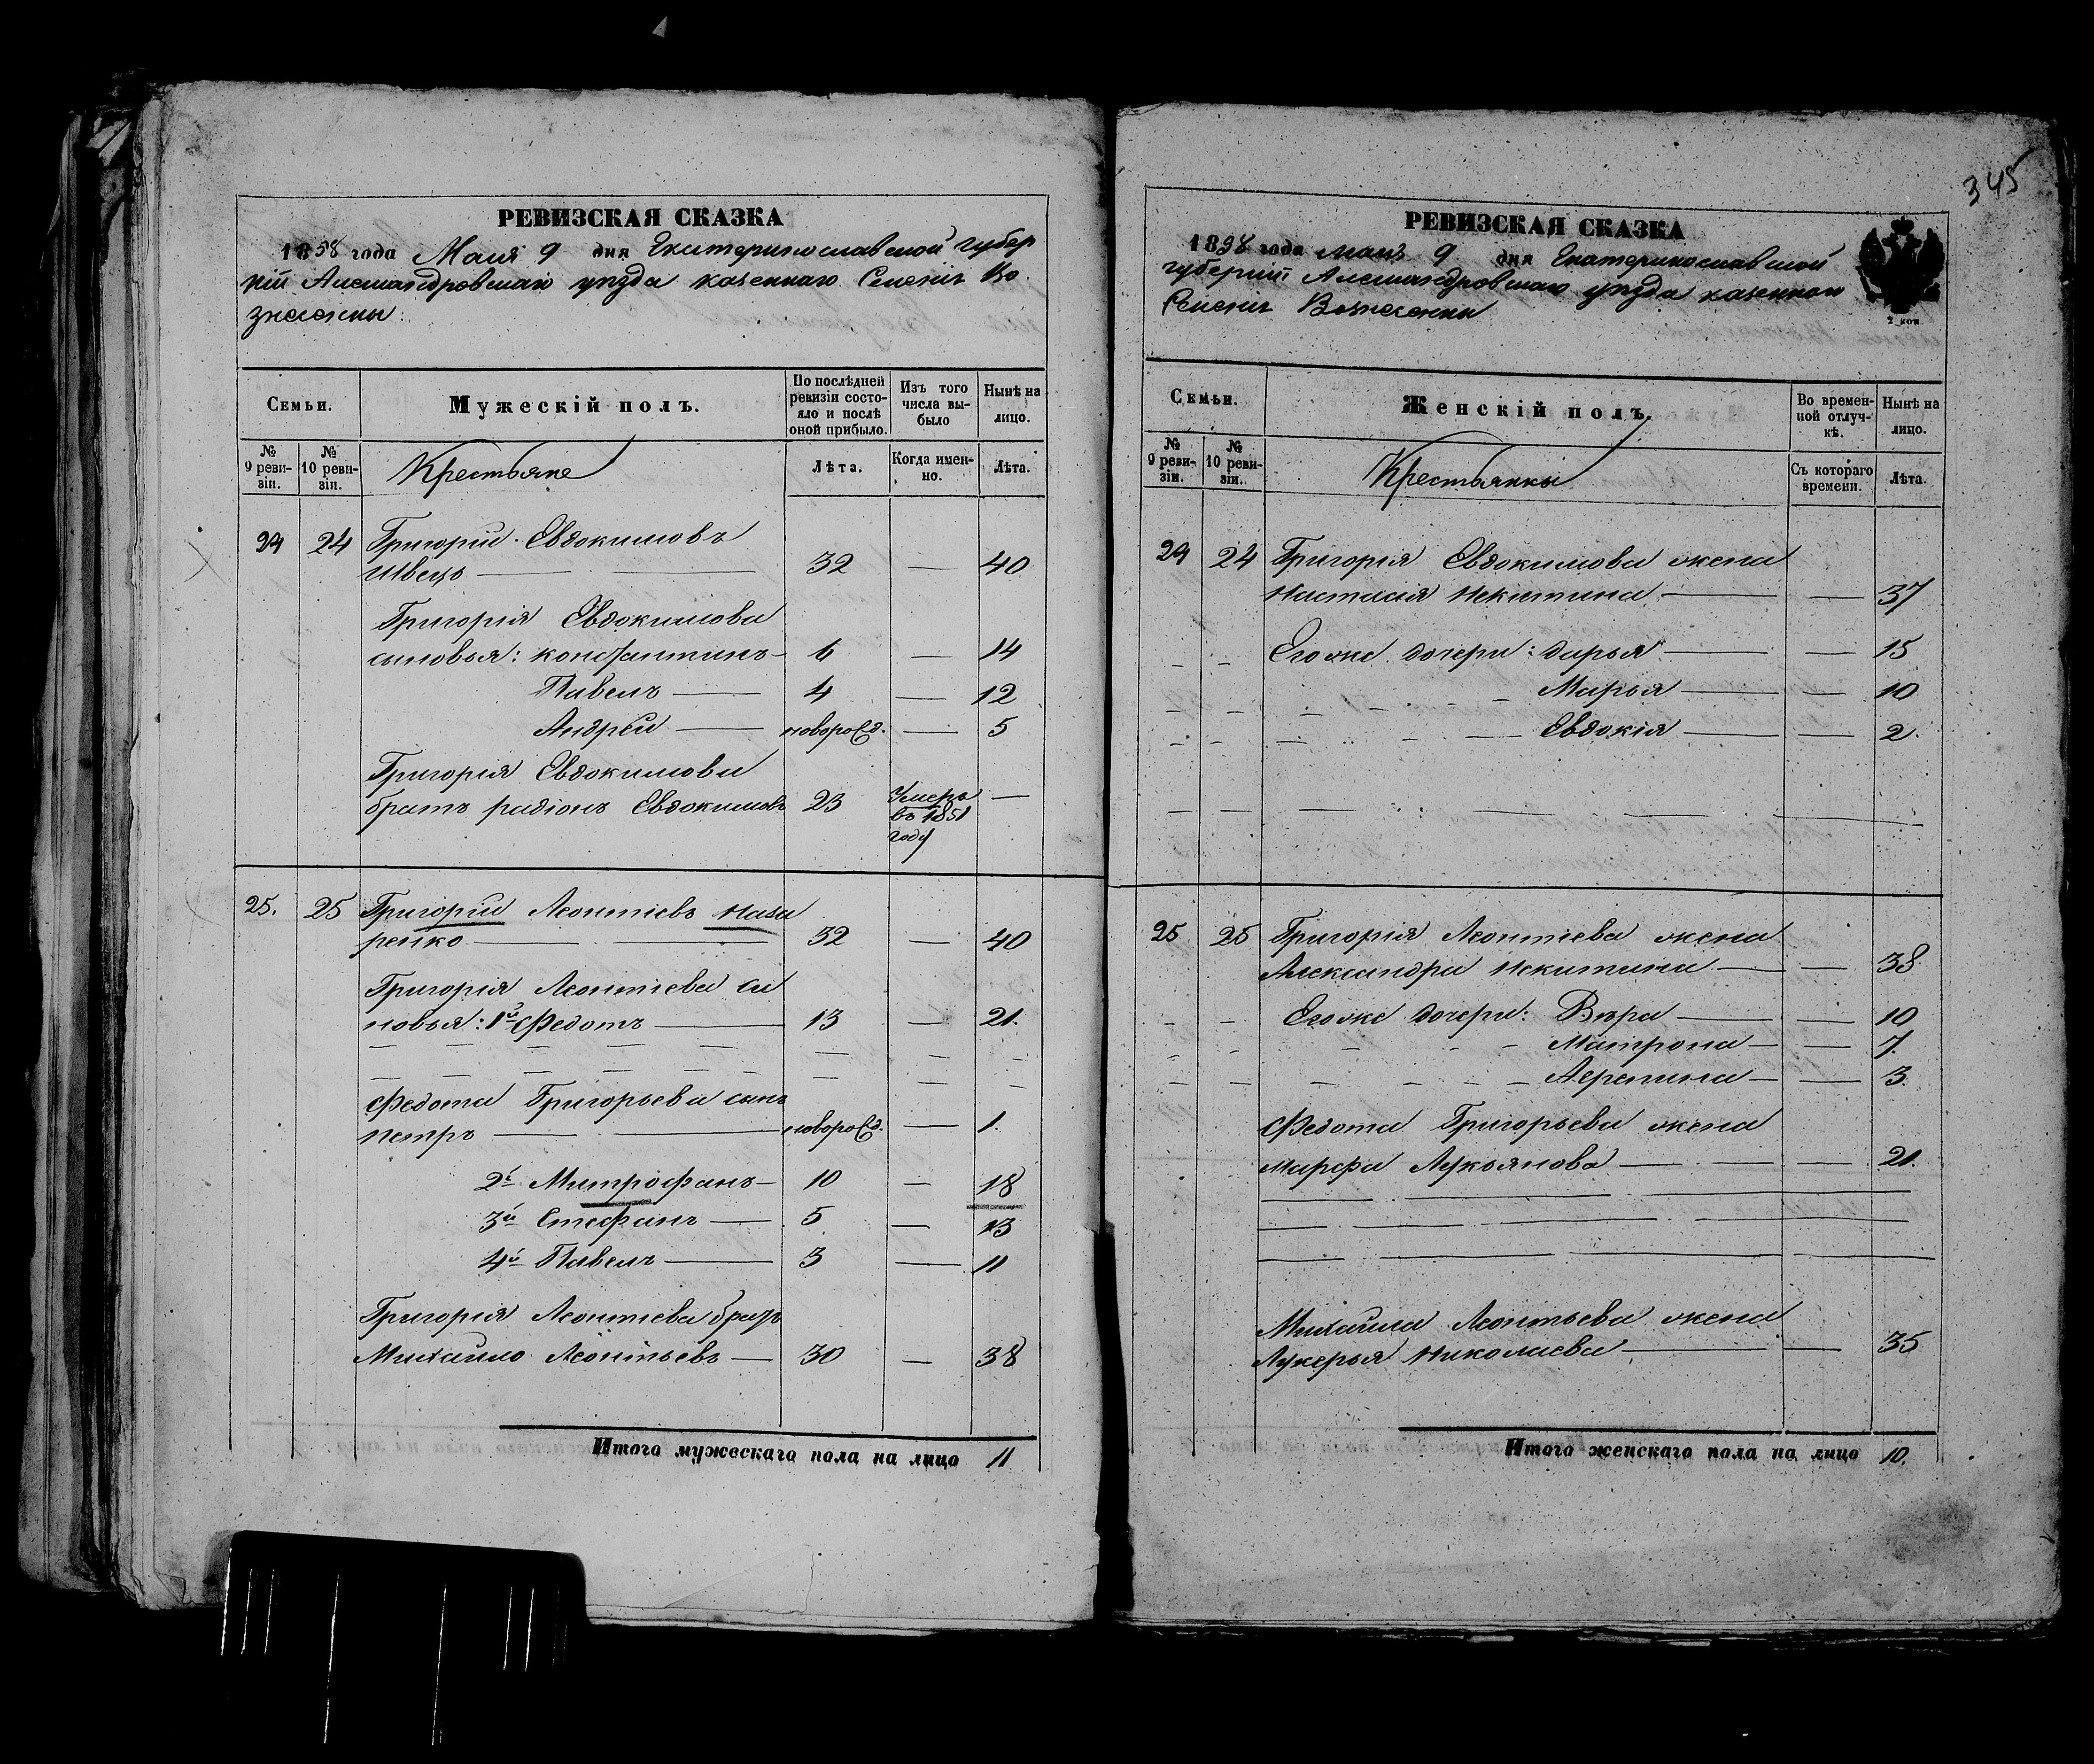 РЕВИЗСКАЯ СКАЗКА
1858 года Мая 9 дня Екатеринославской губер
ніи Александровскаго уѣзда казеннаго Селенія Во
знесенки
Семьи.
Мужескій полъ.
По послѣдней ревизіи состо-
яло и послѣ
оной прибыло.
Изъ того
числа вы-
было
Нынѣ на
лицо.
№
9 реви-
зіи.
№
10 реви-
зіи.
Крестьяне
Лѣта.
Когда имен-
но.
Лѣта.
24 24 Григорій Евдокимовъ
Швецъ — 32 — 40
Григорія Евдокимова
сыновья: константинъ 6 — 14
Павелъ — 4 — 12
Андрей — новорожд. — 5
Григорія Евдокимова
братъ радіонъ Евдокимовъ 23 Умеръ въ 1851 году —
25. 25 Григорій Леонтіевъ Наза
ренко — 32 — 40
Григорія Леонтіева сы
новья: 1й Федотъ — 13 — 21.
Федота Григорьева сынъ
петръ — новорожд. — 1.
2й Митрофанъ — 10 — 18
3й Стефанъ — 5 — 13
4й Павелъ — 3 — 11
Григорія Леонтіева братъ
Михайло Леонтьевъ — 30 — 38
Итого мужескаго пола на лицо 11
345
РЕВИЗСКАЯ СКАЗКА
1858 года мая 9 дня Екатеринославской
губерніи Александровскаго уѣзда казеннаго
Селенія Вознесенки
2 коп.
Семьи.
Женскій полъ.
Во времен-
ной отлуч-
кѣ.
Нынѣ на
лицо.
№
9 реви-
зіи.
№
10 реви-
зіи.
Крестьянки
Съ котораго
времени.
Лѣта.
24 24 Григорія Евдокимова жена
Настасія Никитина — — 37
Его же дочери: дарья — — 15
Марья — — 10
Евдокія — — 2.
25 25 Григорія Леонтіева жена
Александра Никитина — — 38
Его же дочери: Вѣра — — 10
Матрона — — 7.
Агрепина — — 3.
Федота Григорьева жена
марфа Лукьянова — — 21.
Михайла Леонтьева жена
Лукерья Николаева — — 35
Итого женскаго пола на лицо 10.